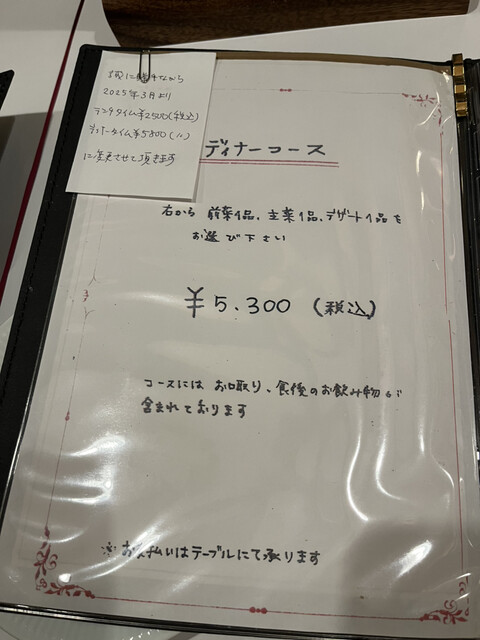 誠に勝手ながら
2025年3月より
ランチタイム¥2500(税込)
ディナータイム¥5800(〃)
に変更させて頂きます
ディナーコース
右から 前菜1品、主菜1品、デザート1品を
お選び下さい
¥5.300 (税込)
コースには お口取り、食後のお飲み物が
含まれております
※ お支払いはテーブルにて承ります